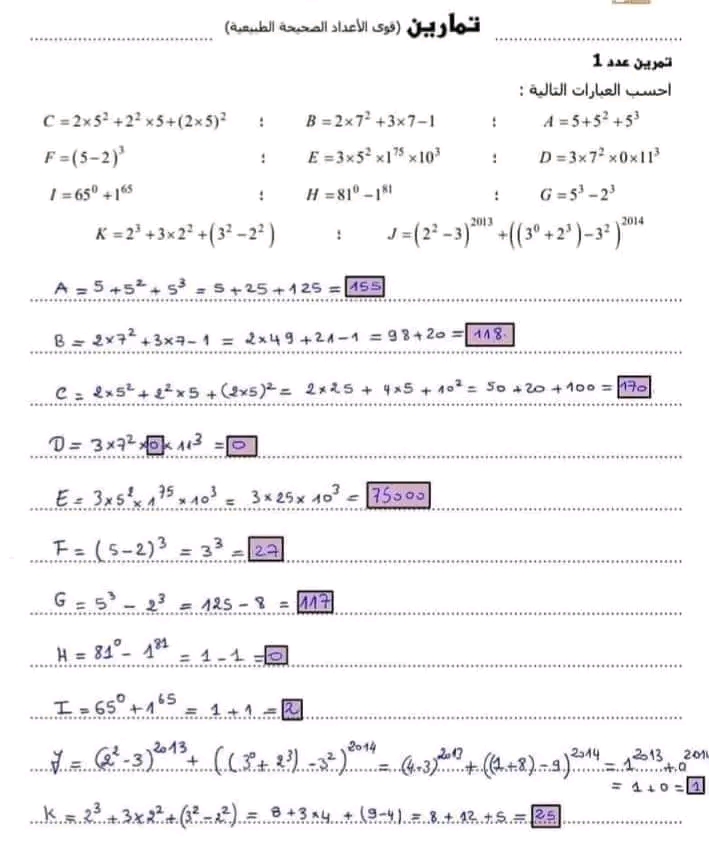 تمارين (قوى الأعداد الصحيحة الطبيعية)
تمرين عدد 1
احسب العبارات التالية :
A = 5+5² +5³ ; B = 2×7² +3×7−1 ; C = 2×5² +2² ×5+(2×5)²
D = 3×7² ×0×11³ ; E = 3×5² ×1⁷⁵ ×10³ ; F = (5−2)³
G = 5³ −2³ ; H = 81⁰ −1⁸¹ ; I = 65⁰ +1⁶⁵
J = (2² −3)²⁰¹³ +((3⁰ +2³)−3²)²⁰¹⁴ ; K = 2³ +3×2² +(3² −2²)
A = 5 +5² + 5³ = 5 + 25 + 125 = 155
B = 2×7² +3×7−1 = 2×49 +21−1 = 98+20 = 118.
C = 2×5² + 2² ×5 +(2×5)² = 2×25 + 4×5 + 10² = 50 +20 +100 = 170
D = 3×7² ×0× 11³ = 0
E = 3×5² × 1⁷⁵ × 10³ = 3×25× 10³ = 75000
F = (5−2)³ = 3³ = 27
G = 5³ − 2³ = 125 − 8 = 117
H = 81⁰ − 1⁸¹ = 1 − 1 = 0
I = 65⁰ + 1⁶⁵ = 1 + 1 = 2
J = (2² −3)²⁰¹³ + ((3⁰+ 2³) −3²)²⁰¹⁴ = (4−3)²⁰¹³ + ((1+8) −9)²⁰¹⁴ = 1²⁰¹³ + 0²⁰¹⁴
= 1 + 0 = 1
K = 2³ + 3×2² + (3² −2²) = 8 +3×4 + (9−4) = 8 + 12 +5 = 25